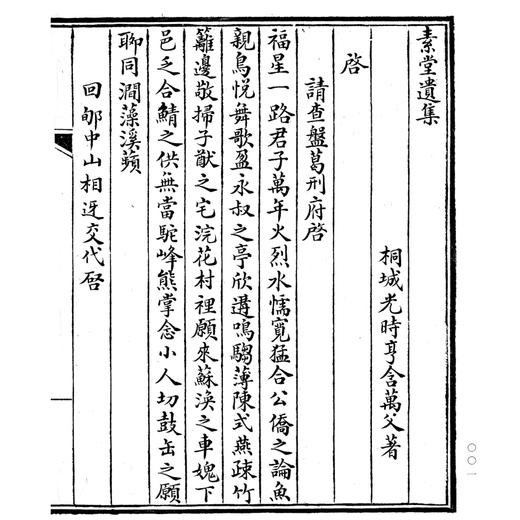 素堂遺集
桐城光時亨含萬父著
啓
請查盤葛刑府啓
福星一路君子萬年火烈水懦寬猛合公僑之論魚
親鳥悅舞歌盈永叔之亭欣遘鳴騶薄陳式燕疎竹
籬邊敬掃子猷之宅浣花村裡願來蘇渙之車媿下
邑乏合鯖之供無當駝峰熊掌念小人切鼓缶之願
聊同澗藻溪蘋
回邮中山相迓交代啓
〇〇一